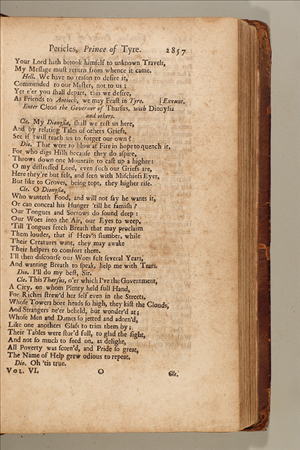 Pericles, Prince of Tyre. 2857
Your Lord hath betook himself to unknown Travels,
My Message must return from whence it came.
Hell. We have no reason to desire it,
Commended to our Master, not to us;
Yet e'er you shall depart, this we desire,
As Friends to Antioch, we may Feast in Tyre. [Exeunt.
Enter Cleon the Governor of Tharsus, with Dionysia
and others.
Cle. My Dionysia, shall we rest us here,
And by relating Tales of others Griefs,
See if 'twill teach us to forget our own?
Dio. That were to blow at Fire in hope to quench it,
For who digs Hills because they do aspire,
Throws down one Mountain to cast up a higher:
O my distressed Lord, even such our Griefs are,
Here they're but felt, and seen with Mischiefs Eyes,
But like to Groves, being topt, they higher rise.
Cle. O Dionysia,
Who wanteth Food, and will not say he wants it,
Or can conceal his Hunger 'till he famish?
Our Tongues and Sorrows do sound deep:
Our Woes into the Air, our Eyes to weep,
'Till Tongues fetch Breath that may proclaim
Them louder, that if Heav'n slumber, while
Their Creatures want, they may awake
Their helpers to comfort them.
I'll then discourse our Woes felt several Years,
And wanting Breath to speak, help me with Tears.
Dio. I'll do my best, Sir.
Cle. This Tharsus, o'er which I've the Government,
A City, on whom Plenty held full Hand,
For Riches strew'd her self even in the Streets,
Whose Towers bore heads so high, they kist the Clouds,
And Strangers ne'er beheld, but wonder'd at;
Whose Men and Dames so jetted and adorn'd,
Like one anothers Glass to trim them by;
Their Tables were stor'd full, to glad the sight,
And not so much to feed on, as delight,
All Poverty was scorn'd, and Pride so great,
The Name of Help grew odious to repeat.
Dio. Oh 'tis true.
VOL. VI. O Cle.